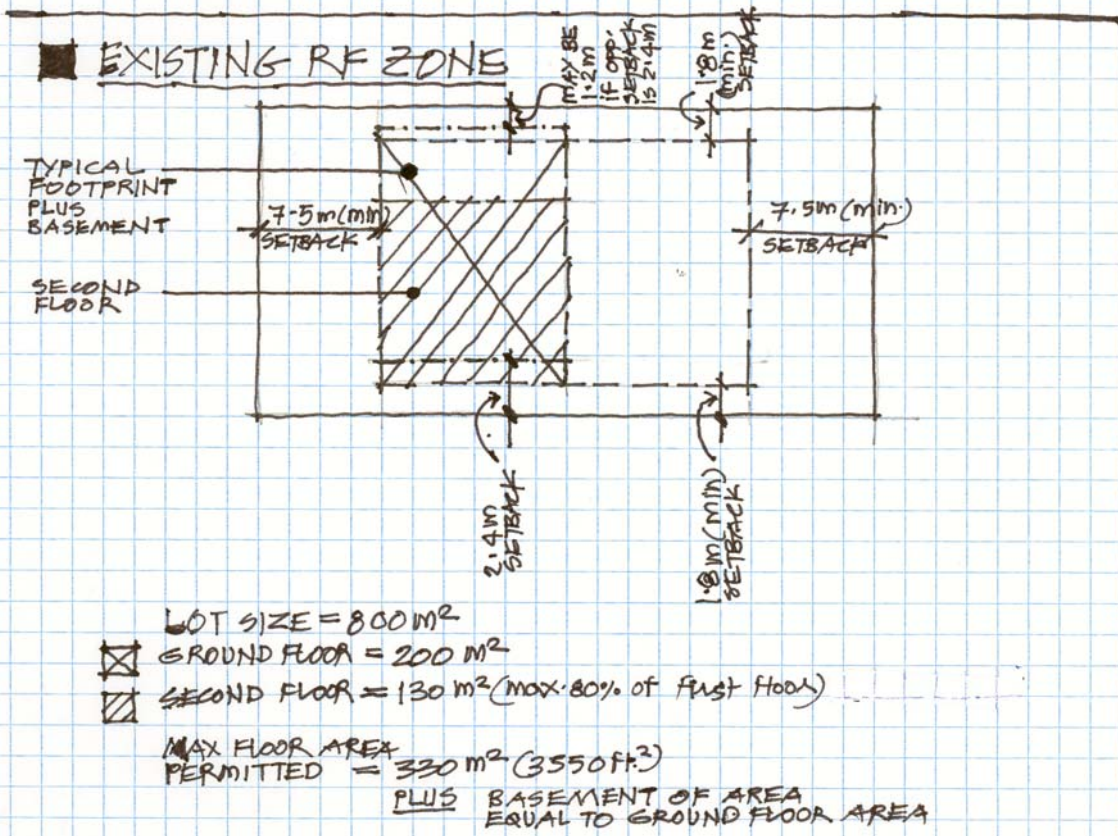 EXISTING RF ZONE
MAY BE
1.2m
if OPP.
SETBACK
IS 2.4m
1.8m
(min.)
SETBACK
TYPICAL
FOOTPRINT
PLUS
BASEMENT
7-5m (min)
SETBACK
7.5m (min.)
SETBACK
SECOND
FLOOR
2.4m
SETBACK
1.8m (min)
SETBACK
LOT SIZE = 800 m²
GROUND FLOOR = 200 m²
SECOND FLOOR = 130 m² (max. 80% of first floor)
MAX FLOOR AREA
PERMITTED = 330 m² (3550 ft.²)
PLUS BASEMENT OF AREA
EQUAL TO GROUND FLOOR AREA